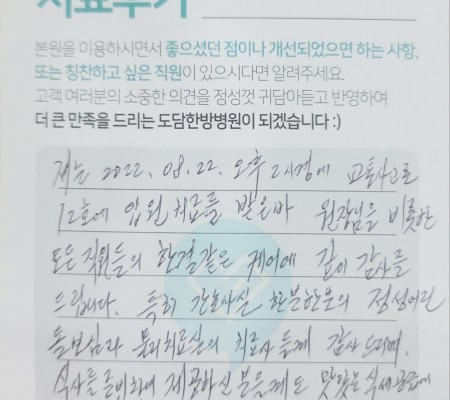 치료후기
본원을 이용하시면서 좋으셨던 점이나 개선되었으면 하는 사항,
또는 칭찬하고 싶은 직원이 있으시다면 알려주세요.
고객 여러분의 소중한 의견을 정성껏 귀담아듣고 반영하여
더 큰 만족을 드리는 도담한방병원이 되겠습니다 :)
저는 2022. 08. 22. 오후 2시경에 교통사고로
12호에 입원 치료를 받은바 원장님을 비롯한
모든 직원들의 한결같은 케어에 깊이 감사를
드립니다. 특히 간호사실 한분한분의 정성어린
돌보심과 물리치료실의 치료사 들께 감사드리며,
식사를 준비하여 제공하신 분들께도 맛있는